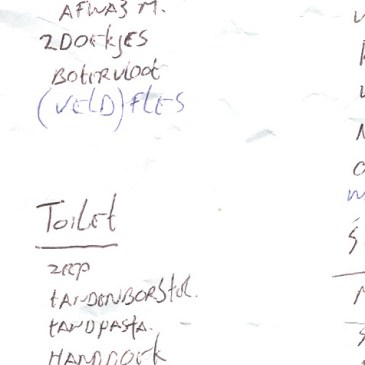 AFWAS M.
2DOEKJES
BOTERVLOOT
(VELD)FLES
Toilet
ZEEP
TANDENBORSTEL.
TANDPASTA.
HANDDOEK